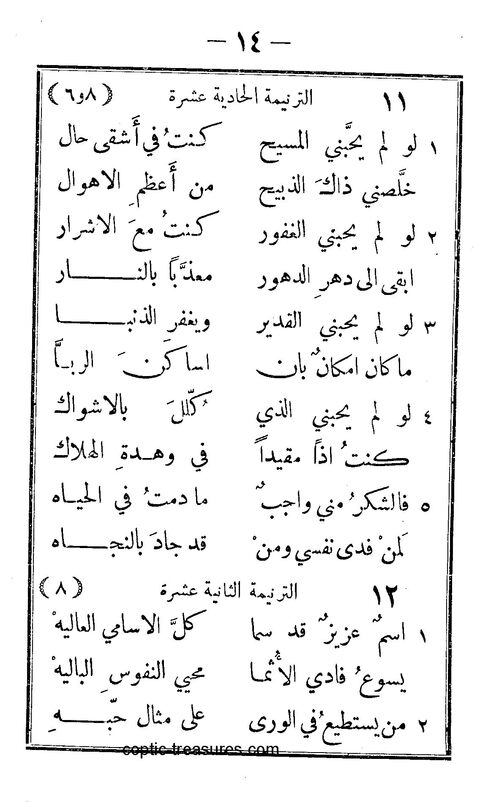 – ١٤ –
١١ الترنيمة الحادية عشرة (٨ و٦)
١ لو لم يحبَّني المسيح كنتُ في أَشقى حال
خلَّصني ذاكَ الذبيح من أَعظمِ الاهوال
٢ لو لم يحبني الغفور كنتُ معَ الاشرار
ابقى الى دهرِ الدهور معذَّباً بالنــــار
٣ لو لم يحبني القدير ويغفرِ الذنبــــا
ما كان امكانٌ بان اساكنَ الربــاَّ
٤ لو لم يحبني الذي كُلّلَ بالاشواك
كنتُ اذاً مقيداً في وهدةِ الهلاك
٥ فالشكرُ مني واجبٌ ما دمتُ في الحياه
لمَنْ فدى نفسي ومنْ قد جادَ بالنجــــاه
١٢ الترنيمة الثانية عشرة (٨)
١ اسمٌ عزيزٌ قد سما كلَّ الاسامي العاليهْ
يسوعُ فادي الأُثما محيي النفوسِ الباليهْ
٢ من يستطيعُ في الورى على مثال حبّــــهِ
coptic-treasures.com